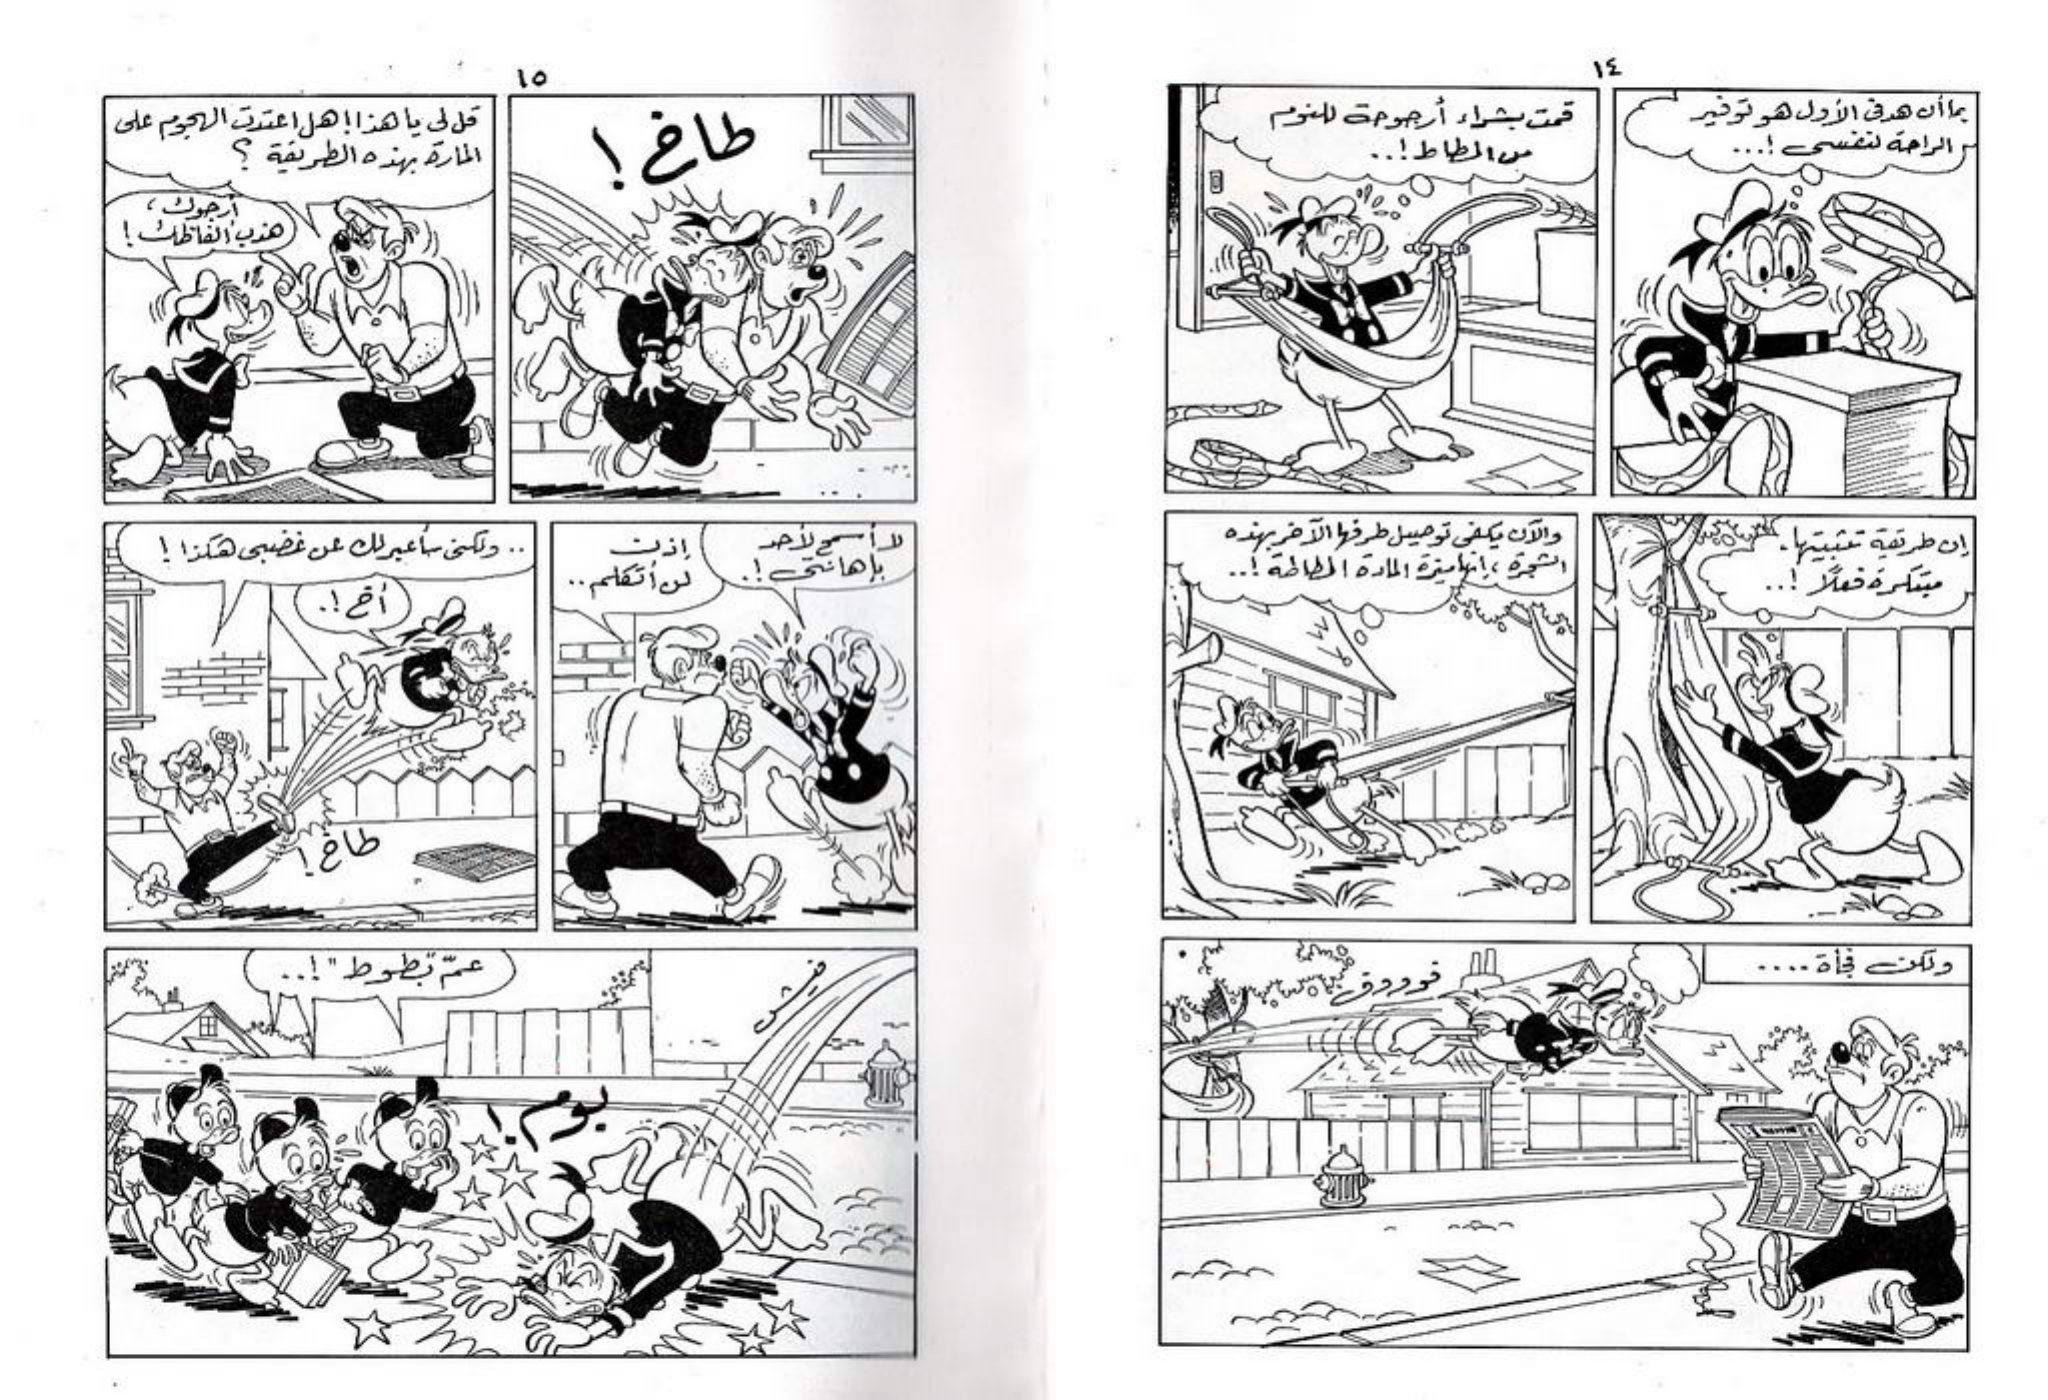 ١٤
بما أن هدفى الأول هو توفير
الراحة لنفسى !...
قمت بشراء أرجوحة للنوم
من المطاط !..
إن طريقة تثبيتها،
مبتكرة فعلاً !..
والآن يكفى توصيل طرفها الآخر بهذه
الشجرة ، إنها ميزة المادة المطاطة !..
ولكن فجأة ....
ڤوووو
١٥
طاخ !
قل لى يا هذا ! هل اعتدت الهجوم على
المارة بهذه الطريقة ؟
أرجوك ،
هذب ألفاظك !
لا أسمح لأحد
بإهانتى !.
إذن
لن أتكلم ..
.. ولكنى سأعبر لك عن غضبى هكذا !
أخ !.
طاخ !
عمّ "بطوط" !..
بوم !